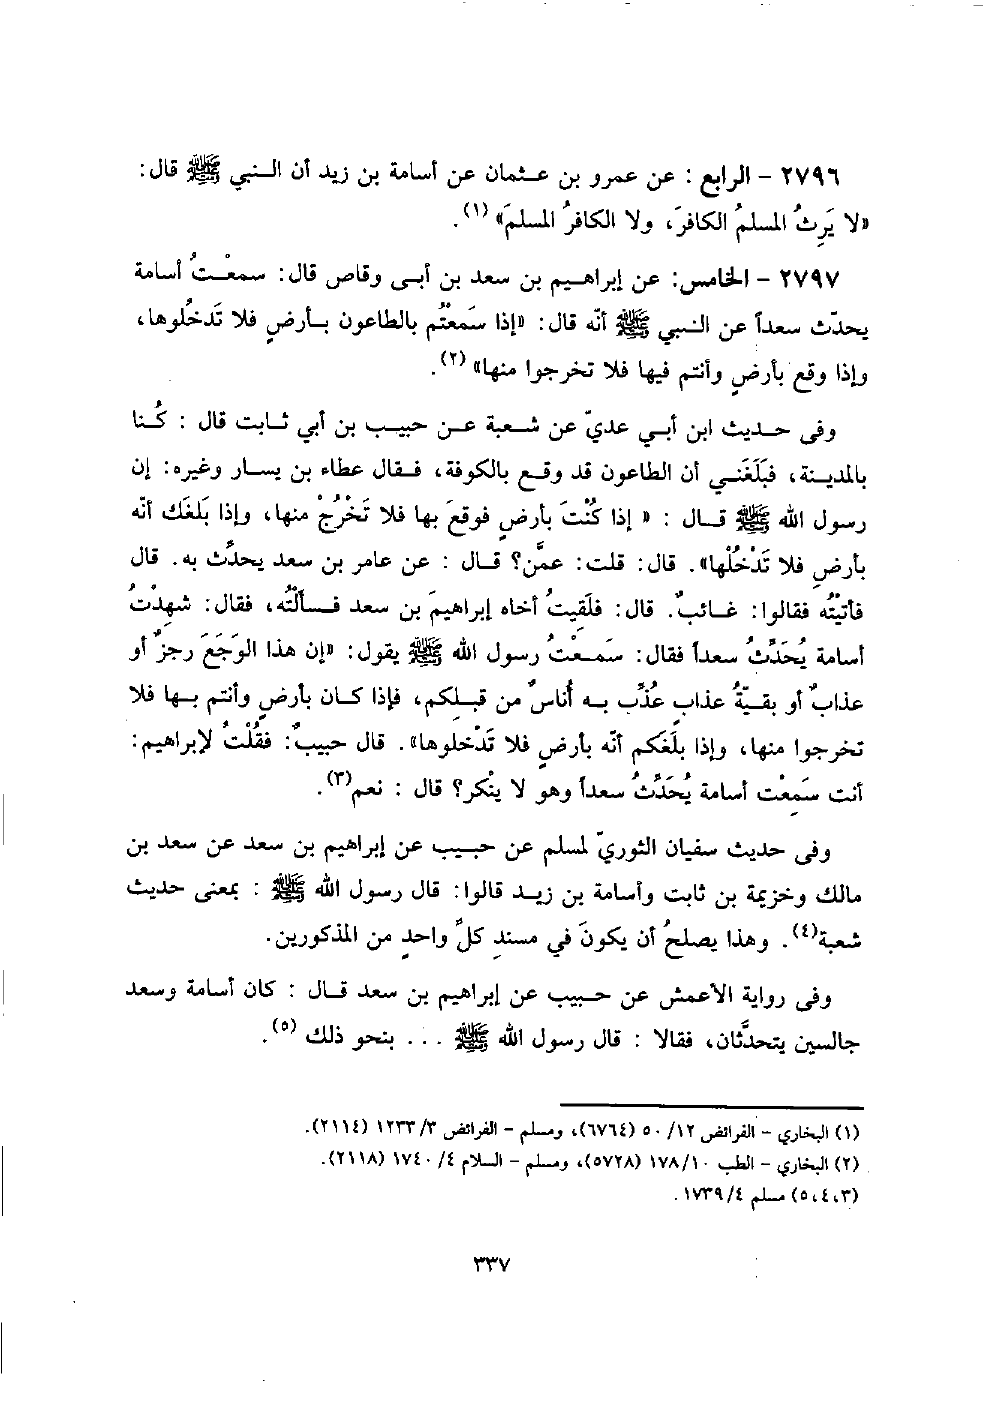 ٢٧٩٦ – الرابع : عن عمرو بن عـثمان عن أسامة بن زيد أن الـنبي ﷺ قال:
«لا يَرِثُ المسلمُ الكافرَ، ولا الكافرُ المسلمَ» (١).
٢٧٩٧ – الخامس: عن إبراهـيم بن سعد بن أبـى وقاص قال: سمعْتُ أسامة
يحدّث سعداً عن النـبي ﷺ أنّه قال: «إذا سَمعْتُم بالطاعون بـأرضٍ فلا تَدخُلوها،
وإذا وقع بأرضٍ وأنتم فيها فلا تخرجوا منها» (٢).
وفى حـديث ابن أبـي عديّ عن شـعبة عـن حبيـب بن أبي ثـابت قال : كُـنا
بالمديـنة، فبَلَغَنـي أن الطاعون قد وقـع بالكوفة، فـقال عطاء بن يسـار وغيره: إن
رسول الله ﷺ قـال : « إذا كُنْتَ بأرضٍ فوقعَ بها فلا تَخْرُجْ منها، وإذا بَلَغك أنّه
بأرضٍ فلا تَدْخُلْها». قال: قلت: عمَّن؟ قـال : عن عامر بن سعد يحدِّث به. قال
فأتيْتُه فقالوا: غـائبٌ. قال: فلَقِيتُ أخاه إبراهيمَ بن سعد فـسألتُه، فقال: شهِدْتُ
أسامة يُحَدِّثُ سعداً فقال: سَمـعتُ رسول الله ﷺ يقول: «إن هذا الوَجَعَ رجزٌ أو
عذابٌ أو بقـيّةُ عذابٍ عُذِّب بـه أُناسٌ من قـبلكم، فإذا كـان بأرضٍ وأنتم بـها فلا
تخرجوا منها، وإذا بلَغَكم أنّه بأرضٍ فلا تَدْخلوها». قال حبيبٌ: فقُلْتُ لإبراهيم:
أنت سَمِعْت أسامة يُحَدِّثُ سعداً وهو لا ينْكر؟ قال : نعم(٣).
وفى حديث سفيان الثوريّ لمسلم عن حبـيب عن إبراهيم بن سعد عن سعد بن
مالك وخزيمة بن ثابت وأسامة بن زيـد قالوا: قال رسول الله ﷺ : بمعنى حديث
شعبة(٤). وهذا يصلحُ أن يكونَ في مسندِ كلِّ واحدٍ من المذكورين.
وفى رواية الأعمش عن حـبيب عن إبراهيم بن سعد قـال : كان أسامة وسعد
جالسين يتحدَّثان، فقالا : قال رسول الله ﷺ ... بنحو ذلك (٥).
(١) البخاري – الفرائض ١٢/ ٥٠ (٦٧٦٤)، ومسلم – الفرائض ٣/ ١٢٣٣ (٢١١٤).
(٢) البخاري – الطب ١٠/ ١٧٨ (٥٧٢٨)، ومسلم – السلام ٤/ ١٧٤٠ (٢١١٨).
(٣،٤،٥) مسلم ٤/ ١٧٣٩.
٣٣٧